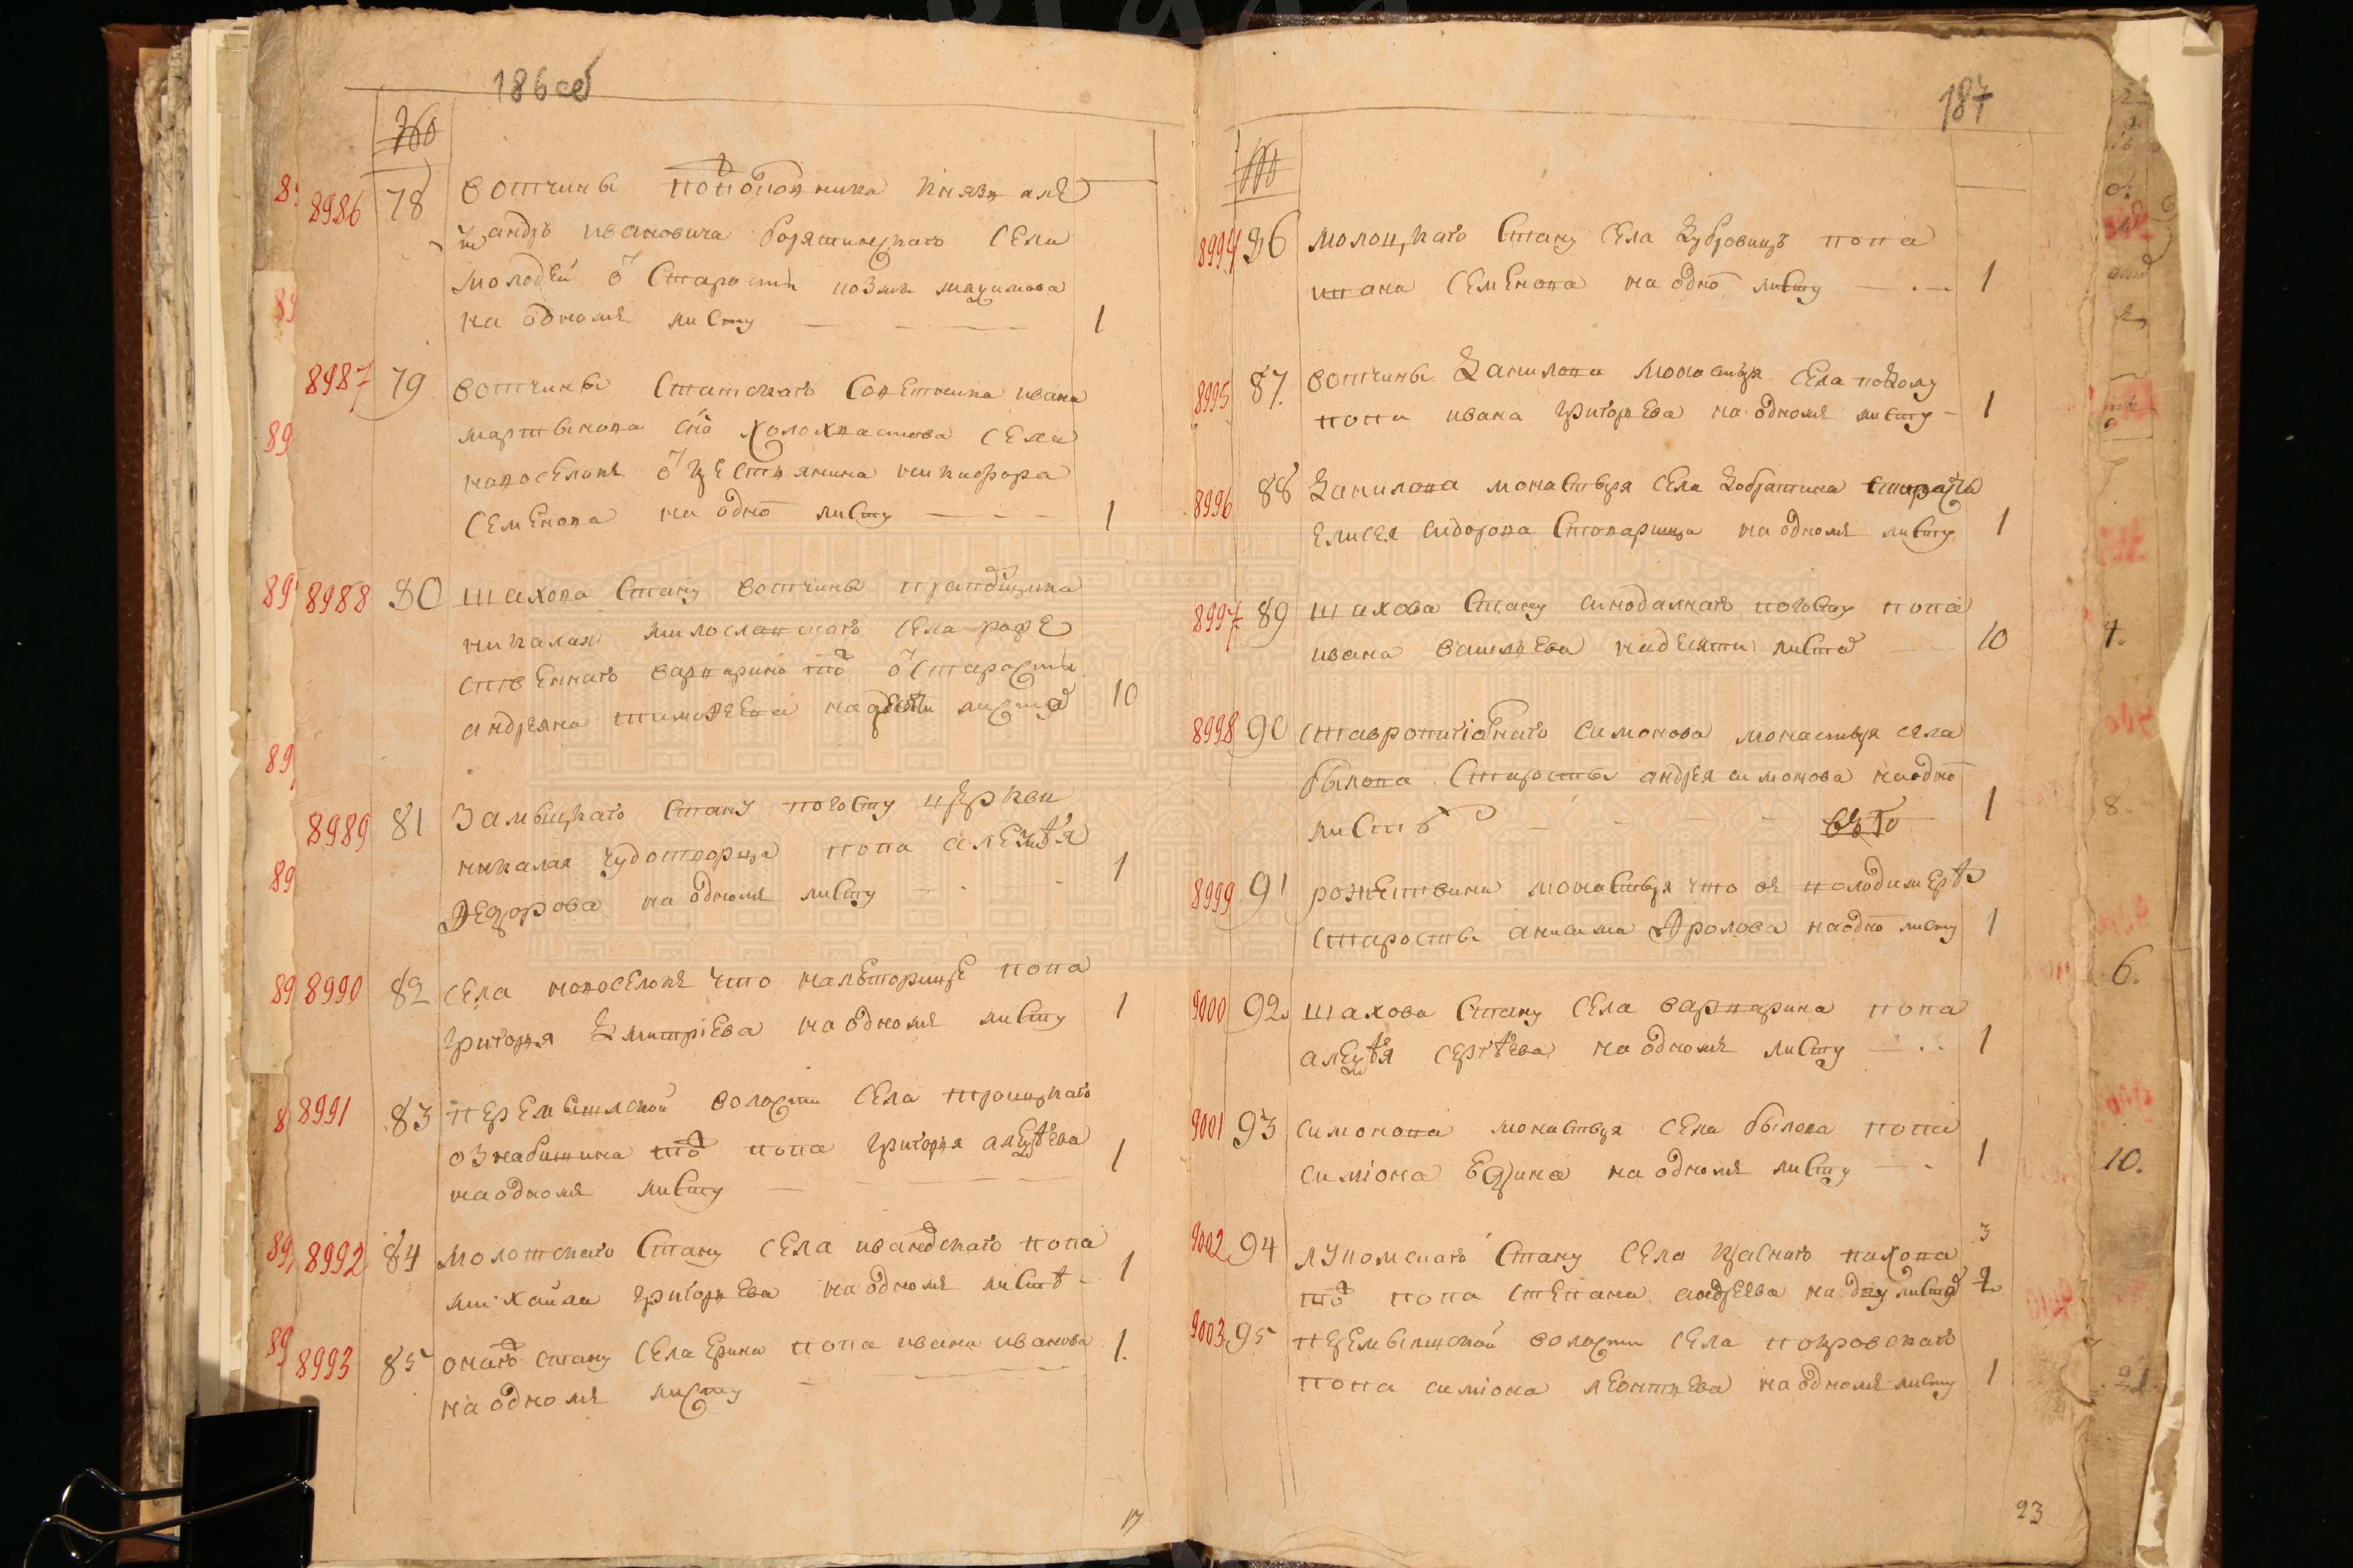 186 об
760
8986 78 вотчины подполковника князя але
ѯандръ ивановича борятинскаго села
молодей ѿ старосты козмы маѯимова
на одномъ листу — — — 1
8987 79 вотчины статскаго советника ивана
мартынова сна холохвастова села
новоселокъ ѿ крестьянина никифора
семенова на одно листу — — — 1
8988 80 шахова стану вотчины прапорщика
николая милославскаго села роже
ственнаго варварино тоъ ѿ старосты
андреяна тимофеева на десяти листаъ 10
8989 81 замыцкаго стану погосту церкви
николая чудотворца попа алеѯѣя
федорова на одномъ листу — — 1
8990 82 села новоселокъ что на
григорья дмитріева на одномъ листу 1
8991 83 перемышлской волости села троицкаго
ознабишина тоъ попа григорья алеѯѣева
на одномъ листу — — — 1
8992 84 молотскаго стану села ивановскаго попа
михайла григорьева на одномъ листѣ - 1
8993 85 онаго стану села ерина попа ивана иванова
на одномъ листу — — 1.
17
187
8994 86 молоцкаго стану села дубровицъ попа
ивана семенова на одно листу — . — 1
8995 87. вотчины данилова монастыря села
попа ивана григорьева на одномъ листу - 1
8996 88 данилова монастыря села добрятина старосты
елисея сидорова на одномъ листу 1
8997 89 шахова стану синодалнаго погосту попа
ивана васильева на десяти листаъ — 10
8998 90 ставропигіалнаго симонова монастыря села
былова старосты андрея симонова на одно
листѣ — — — — 1
8999 91 рожествина монастыря что въ володимерѣ
старосты анисима фролова на одно листу 1
9000 92. шахова стану села варварина попа
алеѯѣя сергѣева на одномъ листу — . . 1
9001 93 симонова монастыря села былова попа
симіона на одномъ листу — . 1
9002 94 лукомскаго стану села краснаго пахова 3
тоъ попа степана андреева на дву листаъ 2
9003 95 перемышской волости села покровскаго
попа симіона леонтьева на одномъ листу 1
23